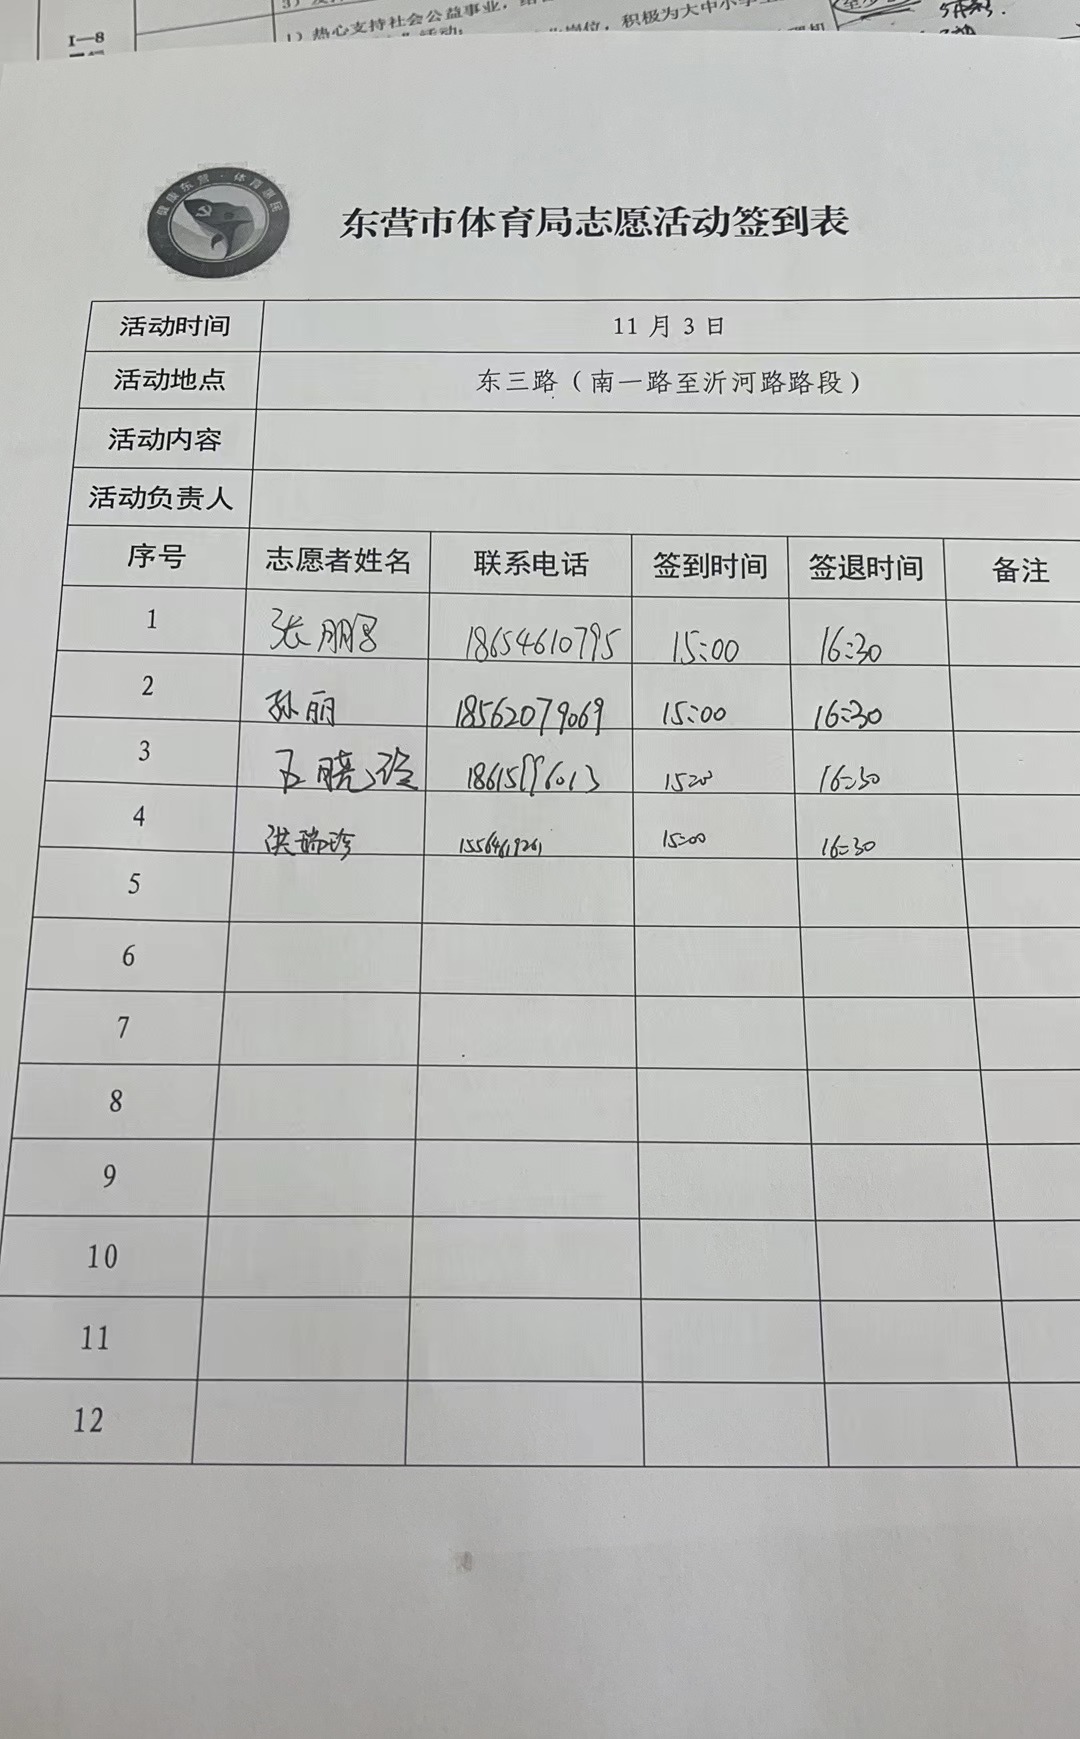 I—8
1）热心支持社会公益事业，
岗位，积极为大中小学生
活动；
健康东营·体育惠民
东营市体育局志愿活动签到表
活动时间 11 月 3 日
活动地点 东三路（南一路至沂河路路段）
活动内容
活动负责人
序号 志愿者姓名 联系电话 签到时间 签退时间 备注
1 张朋 18654610795 15:00 16:30
2 孙丽 18562079069 15:00 16:30
3 王晓玲 16:30
4 洪瑞珍 15:00 16:30
5
6
7
8
9
10
11
12